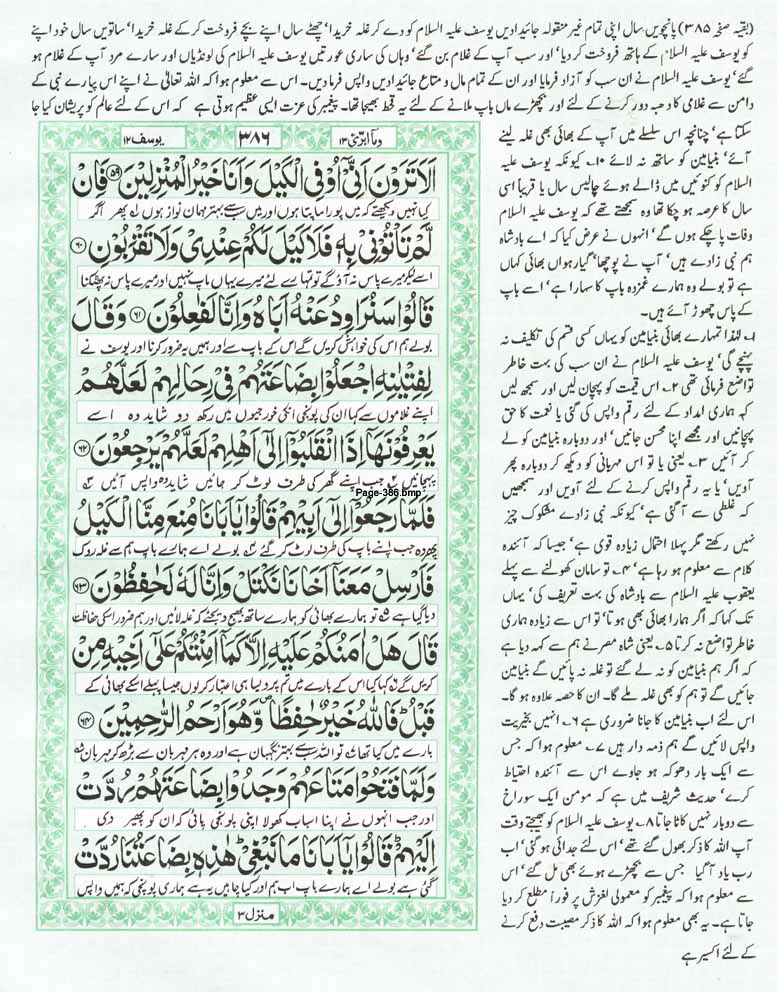 (بقیہ صفحہ ۳۸۵) پانچویں سال اپنی تمام غیر منقولہ جائیدادیں یوسف علیہ السلام کو دے کر غلہ خریدا، چھٹے سال اپنے بچے فروخت کر کے غلہ خریدا، ساتویں سال خود اپنے
کو یوسف علیہ السلام کے ہاتھ فروخت کر دیا، اور سب آپ کے غلام بن گئے، وہاں کی ساری عورتیں یوسف علیہ السلام کی لونڈیاں اور سارے مرد آپ کے غلام ہو
گئے، یوسف علیہ السلام نے ان سب کو آزاد فرمایا اور ان کے تمام مال و متاع جائیدادیں واپس فرما دیں۔ اس سے معلوم ہوا کہ اللہ تعالیٰ نے اپنے اس پیارے نبی کے
دامن سے غلامی کا دھبہ دور کرنے کے لئے اور بچھڑے ماں باپ ملانے کے لئے یہ قحط بھیجا تھا۔ پیغمبر کی عزت ایسی عظیم ہوتی ہے کہ اس کے لئے عالم کو پریشان کیا جا
سکتا ہے، چنانچہ اس سلسلے میں آپ کے بھائی بھی غلہ لینے
آئے، بنیامین کو ساتھ نہ لائے ۱۰؎ کیونکہ یوسف علیہ
السلام کو کنوئیں میں ڈالے ہوئے چالیس سال یا قریباً اسی
سال کا عرصہ ہو چکا تھا وہ سمجھتے تھے کہ یوسف علیہ السلام
وفات پا چکے ہوں گے، انہوں نے عرض کیا کہ اے بادشاہ
ہم نبی زادے ہیں، آپ نے پوچھا، گیارہواں بھائی کہاں
ہے تو بولے وہ ہمارے غمزدہ باپ کا سہارا ہے، اسے باپ
کے پاس چھوڑ آئے ہیں۔
۱؎ لہٰذا تمہارے بھائی بنیامین کو یہاں کسی قسم کی تکلیف نہ
پہنچے گی، یوسف علیہ السلام نے ان سب کی بہت خاطر
تواضع فرمائی تھی ۲؎ اس قیمت کو پہچان لیں اور سمجھ لیں
کہ ہماری امداد کے لئے رقم واپس کی گئی یا نعمت کا حق
پہچانیں اور مجھے اپنا محسن جانیں، اور دوبارہ بنیامین کو لے
کر آئیں ۳؎ یعنی یا تو اس مہربانی کو دیکھ کر دوبارہ پھر
آویں، یا یہ رقم واپس کرنے کے لئے آویں اور سمجھیں
کہ غلطی سے آ گئی ہے، کیونکہ نبی زادے مشکوک چیز
نہیں رکھتے مگر پہلا احتمال زیادہ قوی ہے، جیسا کہ آئندہ
کلام سے معلوم ہو رہا ہے، ۴؎ تو سامان کھولنے سے پہلے
یعقوب علیہ السلام سے بادشاہ کی بہت تعریف کی، یہاں
تک کہا کہ اگر ہمارا بھائی بھی ہوتا، تو اس سے زیادہ ہماری
خاطر تواضع نہ کرتا ۵؎ یعنی شاہ مصر نے ہم سے کہہ دیا ہے
کہ اگر ہم بنیامین کو نہ لے گئے تو غلہ نہ پائیں گے بنیامین
جائیں گے تو ہم کو بھی غلہ ملے گا۔ ان کا حصہ علاوہ ہو گا۔
اس لئے اب بنیامین کا جانا ضروری ہے ۶؎ انہیں بخیریت
واپس لائیں گے ہم ذمہ دار ہیں ۷؎ معلوم ہوا کہ جس
سے ایک بار دھوکہ ہو جاوے اس سے آئندہ احتیاط
کرے، حدیث شریف میں ہے کہ مومن ایک سوراخ
سے دوبار نہیں کاٹا جاتا ۸؎ یوسف علیہ السلام کو بھیجتے وقت
آپ اللہ کا ذکر بھول گئے تھے، اس لئے جدائی ہو گئی، اب
رب یاد آ گیا جس سے بچھڑے ہوئے بھی مل گئے، اس
سے معلوم ہوا کہ پیغمبر کو معمولی لغزش پر فوراً مطلع کر دیا
جاتا ہے۔ یہ بھی معلوم ہوا کہ اللہ کا ذکر مصیبت دفع کرنے
کے لئے اکسیر ہے
وما ابرئ ۱۳ ۳۸۶ یوسف ۱۲
اَلَا تَرَوْنَ اَنِّیْۤ اُوْفِی الْکَیْلَ وَ اَنَا خَیْرُ الْمُنْزِلِیْنَ ﴿۵۹﴾ فَاِنْ
کیا نہیں دیکھتے کہ میں پورا ماپتا ہوں اور میں سب سے بہتر مہمان نواز ہوں ۱؎ پھر اگر
لَّمْ تَاْتُوْنِیْ بِهٖ فَلَا کَیْلَ لَکُمْ عِنْدِیْ وَ لَا تَقْرَبُوْنِ ﴿۶۰﴾
اسے لیکر میرے پاس نہ آؤ گے تو تمہارے لئے میرے یہاں ماپ نہیں اور میرے پاس نہ پھٹکنا
قَالُوْا سَنُرَاوِدُ عَنْهُ اَبَاهُ وَ اِنَّا لَفٰعِلُوْنَ ﴿۶۱﴾ وَ قَالَ
بولے ہم اس کی خواہش کریں گے اس کے باپ سے اور ہمیں یہ ضرور کرنا اور یوسف نے
لِفِتْیٰنِهِ اجْعَلُوْا بِضَاعَتَهُمْ فِیْ رِحَالِهِمْ لَعَلَّهُمْ
اپنے غلاموں سے کہا ان کی پونجی انکی خورجیوں میں رکھ دو شاید وہ اسے
یَعْرِفُوْنَهَاۤ اِذَا انْقَلَبُوْۤا اِلٰۤی اَهْلِهِمْ لَعَلَّهُمْ یَرْجِعُوْنَ ﴿۶۲﴾
پہچانیں ۲؎ جب اپنے گھر کی طرف لوٹ کر جائیں شاید وہ واپس آئیں ۳؎
Page-386.bmp
فَلَمَّا رَجَعُوْۤا اِلٰۤی اَبِیْهِمْ قَالُوْا یٰۤاَبَانَا مُنِعَ مِنَّا الْکَیْلُ
پھر وہ جب اپنے باپ کی طرف لوٹ کر گئے ۴؎ بولے اے ہمارے باپ ہم سے غلہ روک
فَاَرْسِلْ مَعَنَاۤ اَخَانَا نَکْتَلْ وَ اِنَّا لَهٗ لَحٰفِظُوْنَ ﴿۶۳﴾
دیا گیا ہے ۵؎ تو ہمارے بھائی کو ہمارے ساتھ بھیج دیجئے کہ غلہ لائیں اور ہم ضرور اسکی حفاظت
قَالَ هَلْ اٰمَنُکُمْ عَلَیْهِ اِلَّا کَمَاۤ اَمِنْتُکُمْ عَلٰۤی اَخِیْهِ مِنْ
کریں گے ۶؎ کہا کیا اس کے بارے میں تم پر ویسا ہی اعتبار کر لوں جیسا پہلے اسکے بھائی کے
قَبْلُ ؕ فَاللّٰهُ خَیْرٌ حٰفِظًا ۪ وَّ هُوَ اَرْحَمُ الرّٰحِمِیْنَ ﴿۶۴﴾
بارے میں کیا تھا ۷؎ تو اللہ سب سے بہتر نگہبان ہے اور وہ ہر مہربان سے بڑھ کر مہربان ۸؎
وَ لَمَّا فَتَحُوْا مَتَاعَهُمْ وَجَدُوْا بِضَاعَتَهُمْ رُدَّتْ
اور جب انہوں نے اپنا اسباب کھولا اپنی پونجی پائی کہ ان کو پھیر دی
اِلَیْهِمْ ؕ قَالُوْا یٰۤاَبَانَا مَا نَبْغِیْ ؕ هٰذِهٖ بِضَاعَتُنَا رُدَّتْ
گئی ہے بولے اے ہمارے باپ اب ہم اور کیا چاہیں یہ ہے ہماری پونجی کہ ہمیں واپس
منزل ۳